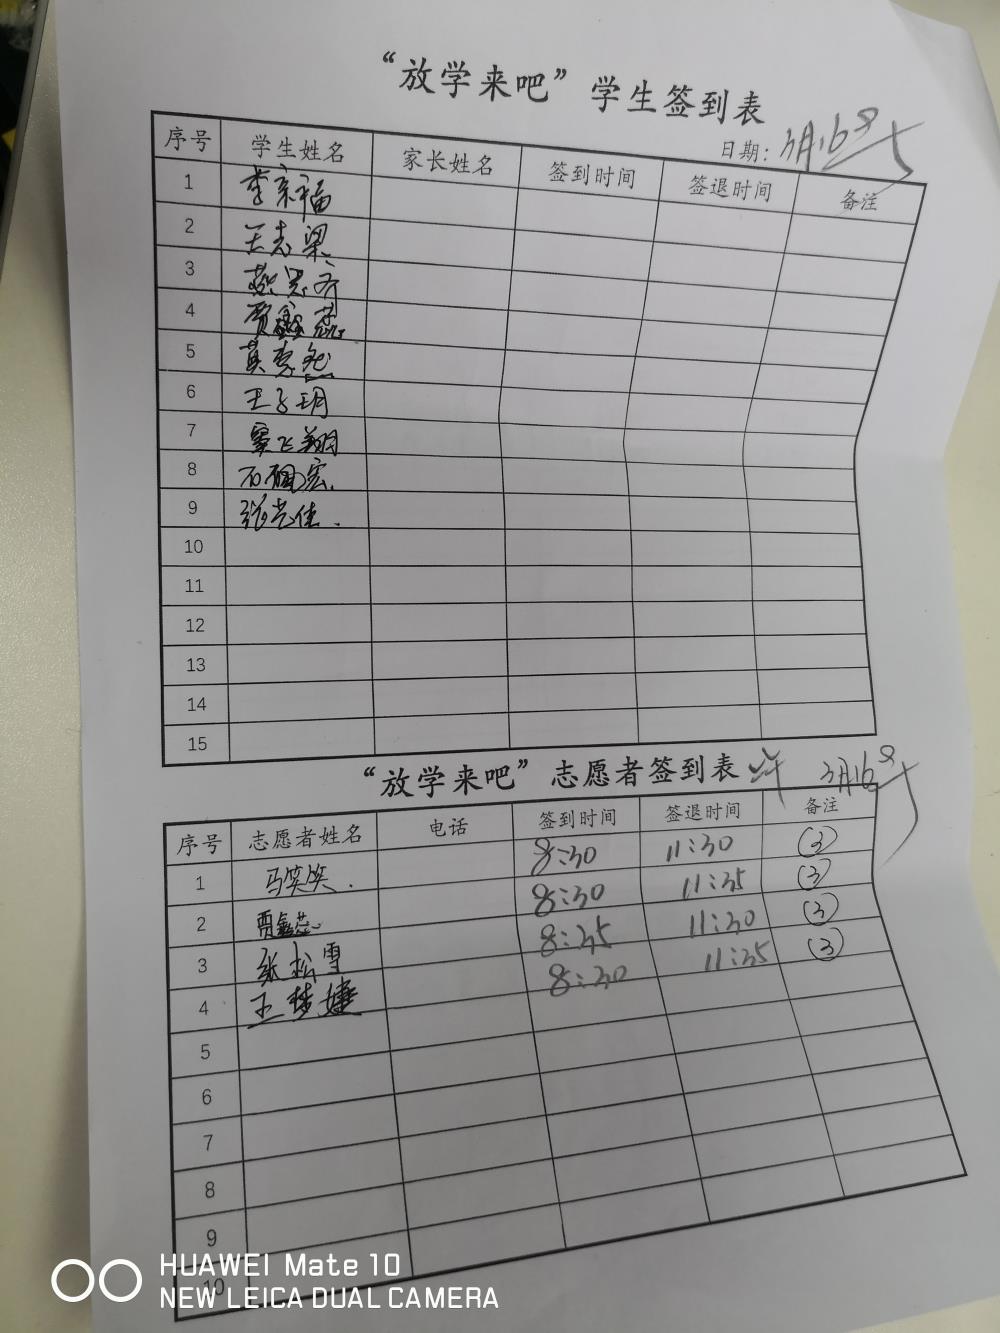 “放学来吧”学生签到表
日期：3月16日
序号 学生姓名 家长姓名 签到时间 签退时间 备注
1 李宗福
2 王志梁
3
4 贾鑫蕊
5
6 王子玥
7 覃飞翔
8 石硕宏
9 张艺佳
10
11
12
13
14
15
“放学来吧”志愿者签到表 3月16日
序号 志愿者姓名 电话 签到时间 签退时间 备注
1 马笑笑 8:30 11:30 (3)
2 贾鑫蕊 8:30 11:35 (3)
3 张松雪 8:35 11:30 (3)
4 王梦婕 8:30 11:35 (3)
5
6
7
8
9
10
HUAWEI Mate 10
NEW LEICA DUAL CAMERA